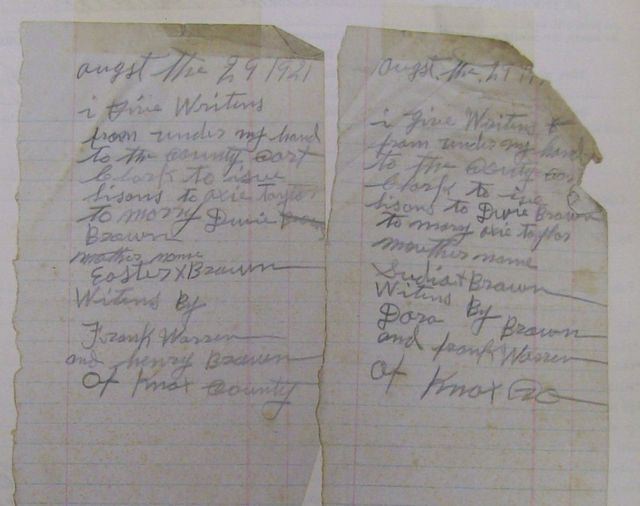 augst the 29 1921
i give Writens
from under my hand
to the County Cort
Clark to issue
lisons to oxie taylor
to marry Duvie
Brown
mother name
Easter x Brown
Witens By
Frank Warren
and henry Brown
Of Knox County
augst the 29
i give Writens
from under my hand
to the County
Clark to isue
lisons to Duvie Brown
to mary oxie taylor
mouther name
Sudia x Brown
Witens By
Dora Brown
and frank Warren
Of Knox Co